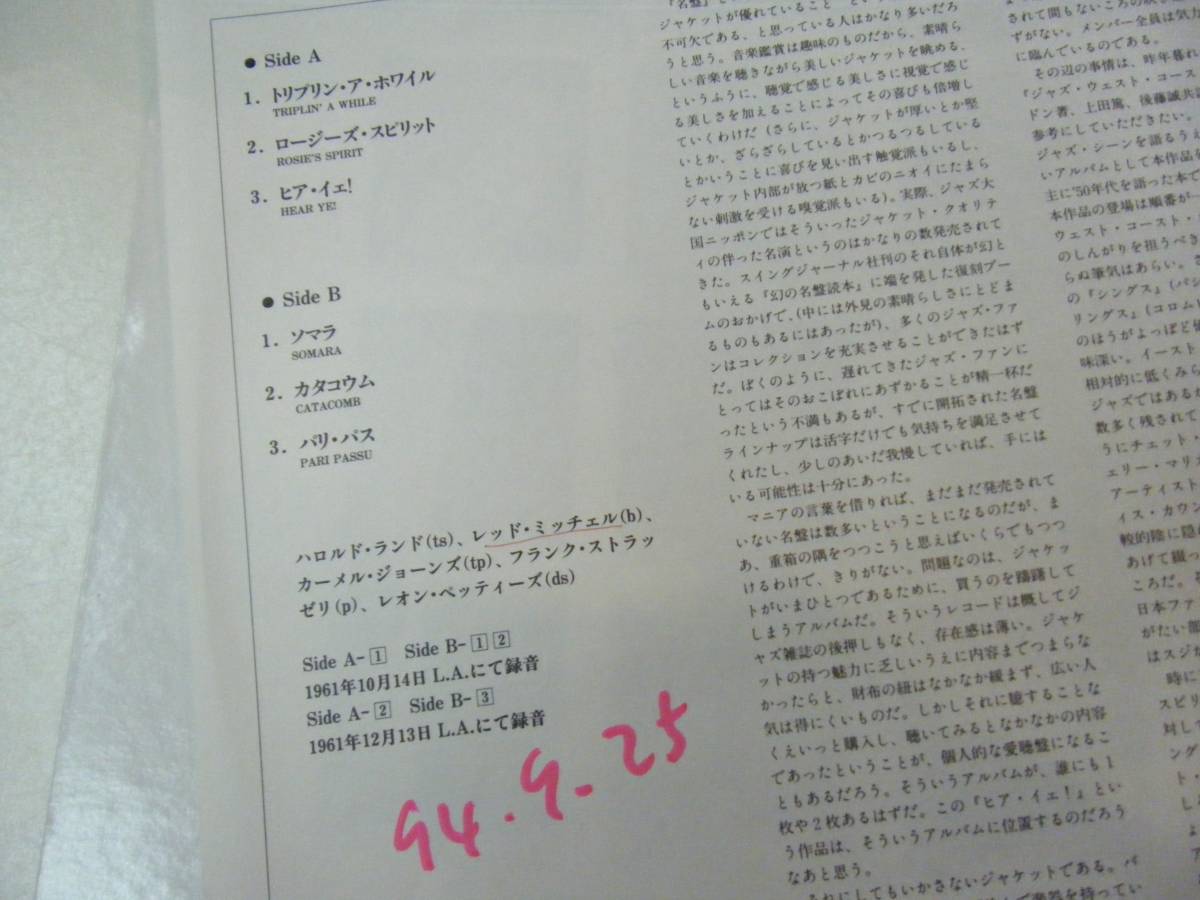 ● Side A
1. トリプリン・ア・ホワイル
TRIPLIN' A WHILE
2. ロージーズ・スピリット
ROSIE'S SPIRIT
3. ヒア・イェ!
HEAR YE!
● Side B
1. ソマラ
SOMARA
2. カタコウム
CATACOMB
3. パリ・パス
PARI PASSU
ハロルド・ランド(ts)、レッド・ミッチェル(b)、
カーメル・ジョーンズ(tp)、フランク・ストラッ
ゼリ(p)、レオン・ペッティーズ(ds)
Side A-1 Side B-1 2
1961年10月14日 L.A.にて録音
Side A-2 Side B-3
1961年12月13日 L.A.にて録音
94.9.25
ジャケットが優れていること
不可欠である、と思っている人はかなり多いだろ
うと思う。音楽鑑賞は趣味のものだから、素晴ら
しい音楽を聴きながら美しいジャケットを眺める、
というふうに、聴覚で感じる美しさに視覚で感じ
る美しさを加えることによってその喜びも倍増し
ていくわけだ(さらに、ジャケットが厚いとか堅
いとか、ざらざらしているとかつるつるしている
とかいうことに喜びを見い出す触覚派もいるし、
ジャケット内部が放つ紙とカビのニオイにたまら
ない刺激を受ける嗅覚派もいる)。実際、ジャズ大
国ニッポンではそういったジャケット・クオリテ
ィの伴った名演というのはかなりの数発売されて
きた。スイングジャーナル社刊のそれ自体が幻と
もいえる『幻の名盤読本』に端を発した復刻ブー
ムのおかげで、(中には外見の素晴らしさにとどま
るものもあるにはあったが)、多くのジャズ・ファ
ンはコレクションを充実させることができたはず
だ。ぼくのように、遅れてきたジャズ・ファンに
とってはそのおこぼれにあずかることが精一杯だ
ったという不満もあるが、すでに開拓された名盤
ラインナップは活字だけでも気持ちを満足させて
くれたし、少しのあいだ我慢していれば、手には
いる可能性は十分にあった。
マニアの言葉を借りれば、まだまだ発売されて
いない名盤は数多いということになるのだが、ま
あ、重箱の隅をつつこうと思えばいくらでもつつ
けるわけで、きりがない。問題なのは、ジャケッ
トがいまひとつであるために、買うのを躊躇して
しまうアルバムだ。そういうレコードは概してジ
ャズ雑誌の後押しもなく、存在感は薄い。ジャケ
ットの持つ魅力に乏しいうえに内容までつまらな
かったらと、財布の紐はなかなか緩まず、広い人
気は得にくいものだ。しかしそれに臆することな
くえいっと購入し、聴いてみるとなかなかの内容
であったということが、個人的な愛聴盤になるこ
ともあるだろう。そういうアルバムが、誰にも1
枚や2枚あるはずだ。この『ヒア・イェ!』とい
う作品は、そういうアルバムに位置するのだろう
なあと思う。
それにしてもいかさないジャケットである。バ
されて間もないころの
ずがない。メンバー全員は気
に臨んでいるのである。
その辺の事情は、昨年暮れ
『ジャズ・ウェスト・コース
ドン著、上田篤、後藤誠共
参考にしていただきたい。
ジャズ・シーンを語るうえ
いアルバムとして本作品を
主に'50年代を語った本で
本作品の登場は順番が一
ウェスト・コースト・
のしんがりを担うべき
らぬ筆気はあらい。さ
の『シングス』(パシ
リングス』(コロム
のほうがよっぽど
味深い。イースト
相対的に低くみら
ジャズではあるが
数多く残されて
うにチェット・
ェリー・マリ
アーティスト
ィス・カウン
較的陰に隠
あげて綴っ
ころだ。
日本ファ
がたい部
はスジか
時に
スピリ
対し
ング
ト・
し
よ